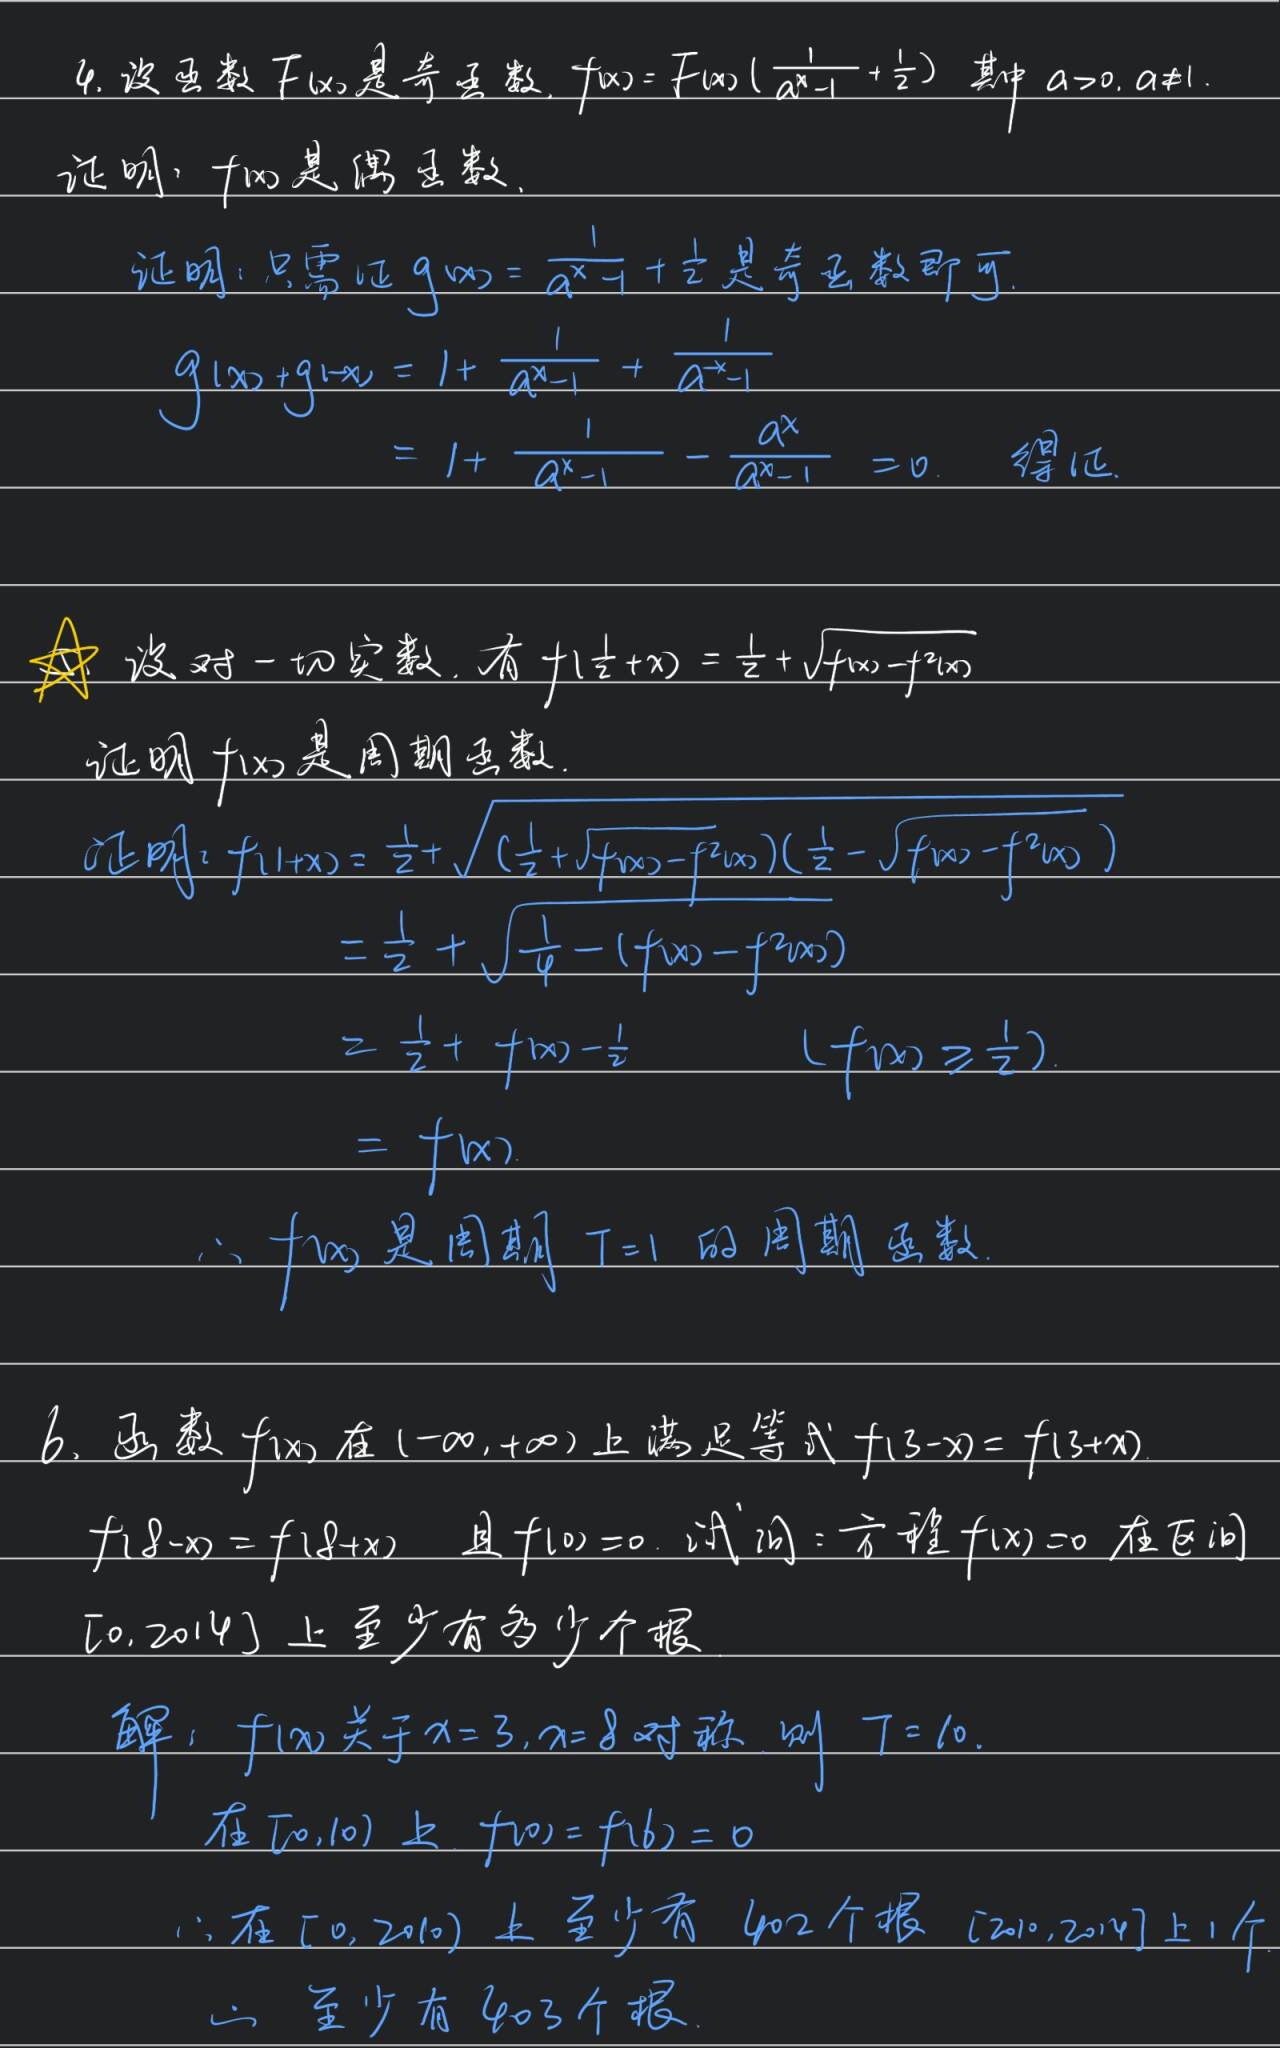 4. 设函数F(x)是奇函数, f(x)=F(x)(1/(a^x-1)+1/2) 其中 a>0, a≠1.
证明: f(x)是偶函数.
证明: 只需证 g(x)=1/(a^x-1)+1/2 是奇函数即可.
g(x)+g(-x)=1+1/(a^x-1)+1/(a^-x-1)
=1+1/(a^x-1)-a^x/(a^x-1)=0. 得证.
设对一切实数, 有 f(1/2+x)=1/2+√(f(x)-f²(x))
证明 f(x)是周期函数.
证明: f(1+x)=1/2+√((1/2+√(f(x)-f²(x)))(1/2-√(f(x)-f²(x))))
=1/2+√(1/4-(f(x)-f²(x)))
=1/2+f(x)-1/2 (f(x)≥1/2).
=f(x).
∴ f(x)是周期 T=1 的周期函数.
6. 函数f(x)在(-∞,+∞)上满足等式 f(3-x)=f(3+x).
f(8-x)=f(8+x) 且f(0)=0. 试问: 方程f(x)=0 在区间
[0,2014]上至少有多少个根.
解: f(x)关于x=3,x=8对称. 则 T=10.
在[0,10)上. f(0)=f(6)=0
∴在[0,2010)上至少有 402个根 [2010,2014]上1个.
∴ 至少有403个根.